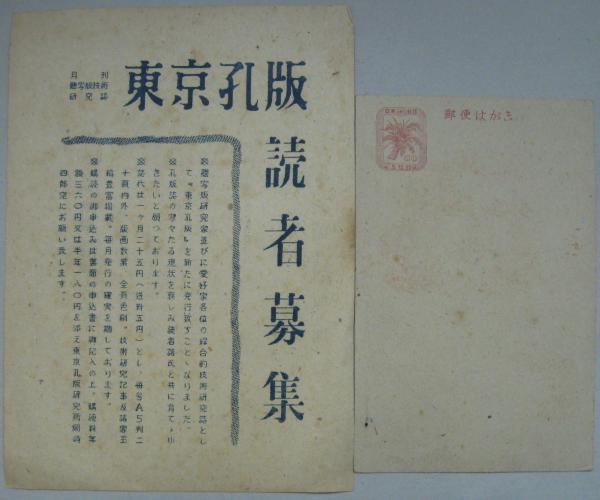 月刊
謄写版技術
研究誌
東京孔版
読者募集
※謄写版研究家並びに愛好家各位の綜合的技術研究誌とし
て『東京孔版』を新たに発行致すことゝなりました。
※孔版誌の寥々たる現状を哀しみ読者諸氏と共に育てゝゆ
きたいと願つております。
※誌代は一ケ月二十五円(送料五円)とし、毎号A5判二
十頁内外、版画数葉、全頁色刷、技術研究記事及諸家玉
稿豊富掲載。毎月発行の確実を期しております。
※購読の御申込みは書簡の申込書に御記入の上、購読料年
額三六〇円又は半年一八〇円を添え東京孔版研究所
四郎宛にお願い致します。
郵便はがき